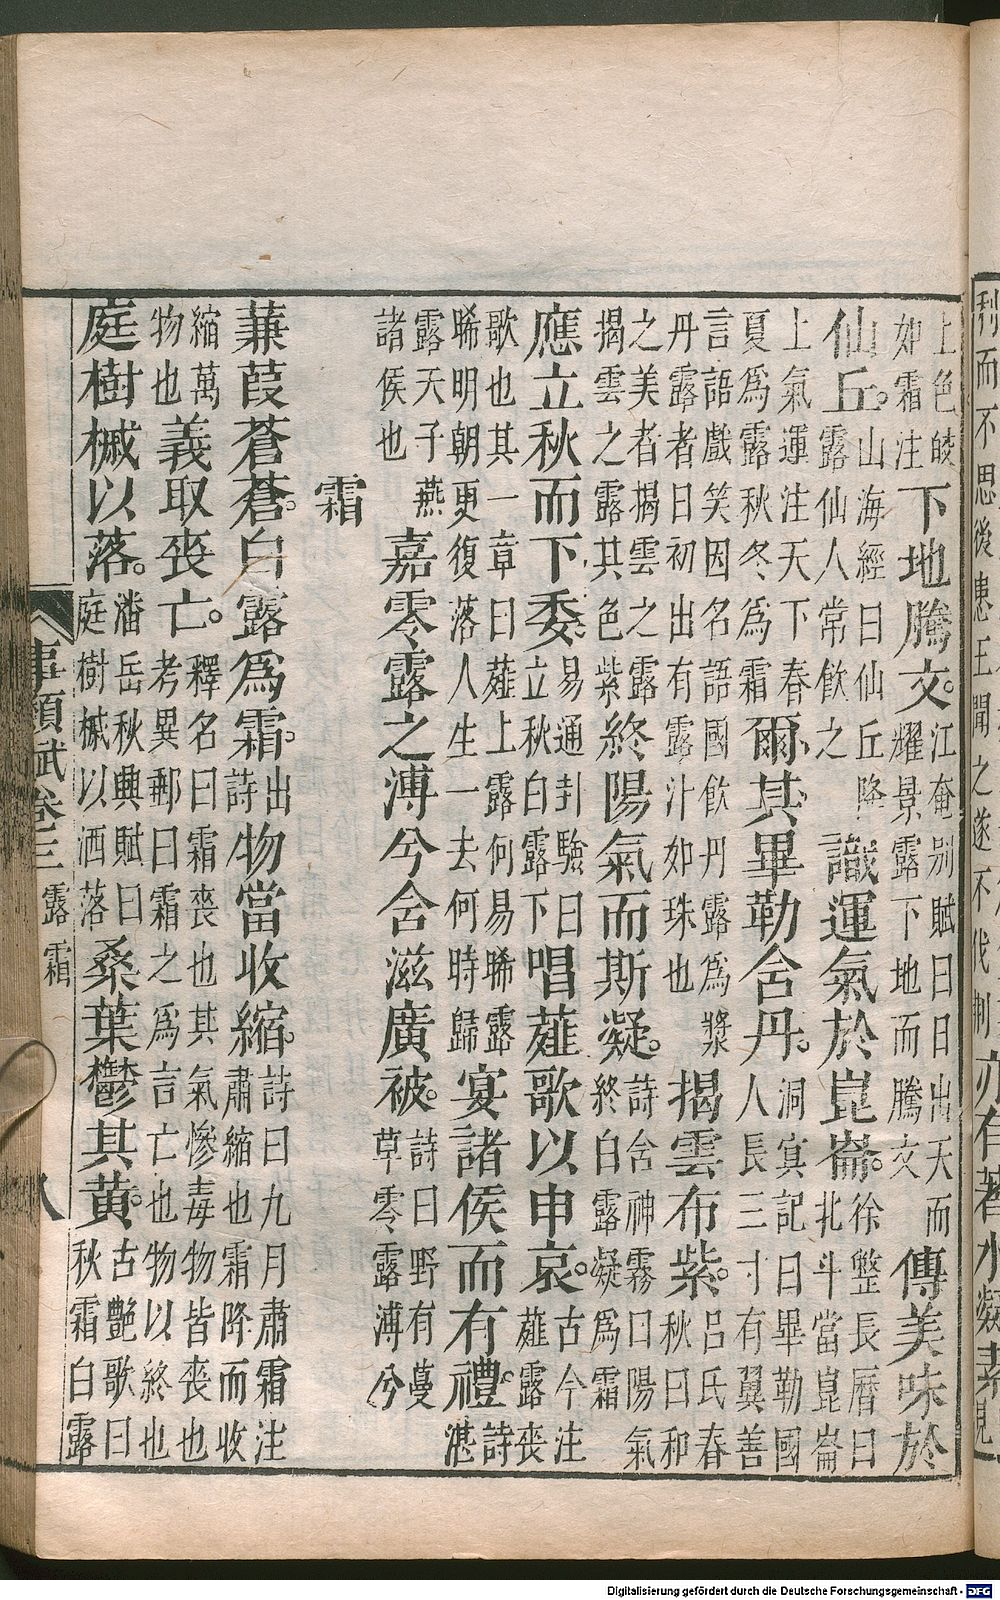 利而不思後患王聞之遂不伐荆
上色皎如霜注下地騰文。江奄别賦曰日出天而耀景露下地而騰文傳美味於
仙丘。山海經曰仙丘降露仙人常飲之識運氣於崑崙。徐整長曆曰北斗當崑崙
上氣運注天下春夏爲露秋冬爲霜爾其畢勒含丹。洞㝠記曰畢勒國人長三寸有翼善
言語戲笑因名語國飲丹露爲漿丹露者日初出有露汁如珠也揭雲布紫。吕氏春秋曰和
之美者揭雲之露揭雲之露其色紫終陽氣而斯凝。詩含神霧曰陽氣終白露凝爲霜
應立秋而下委。易通卦驗曰立秋白露下唱薤歌以申哀。古今注薤露喪
歌也其一章曰薤上露何易晞露晞明朝更復落人生一去何時歸宴諸侯而有禮。詩湛
露天子燕諸侯也嘉零露之溥兮含滋廣被。詩曰野有蔓草零露溥兮
霜
蒹葭蒼蒼。白露爲霜。出詩物當收縮。詩曰九月肅霜注肅縮也霜降而收
縮萬物也義取喪亡。釋名曰霜喪也其氣慘毒物皆喪也考異郵曰霜之爲言亡也物以終也
庭樹槭以落。潘岳秋興賦曰庭樹槭以洒落桑葉鬱其黄。古艶歌曰秋霜白露
事類賦卷三 露霜 八
Digitalisierung gefördert durch die Deutsche Forschungsgemeinschaft - DFG